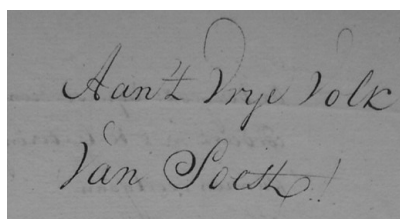 Aan't Vrije Volk
Van Soest!